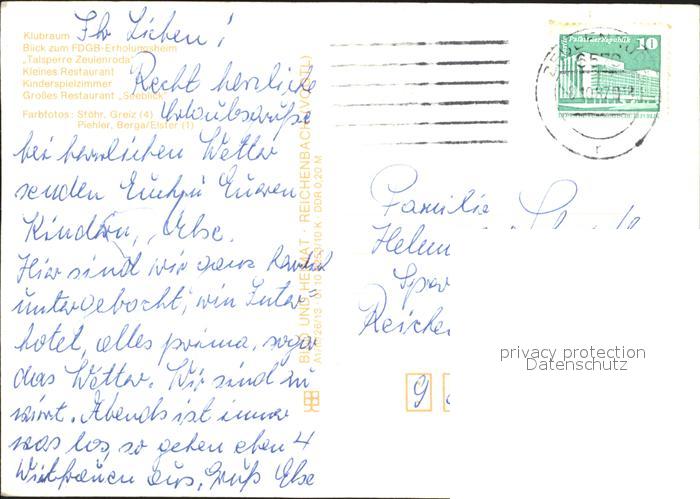 Ihr Lieben!
Klubraum
Blick zum FDGB-Erholungsheim
„Talsperre Zeulenroda"
Kleines Restaurant
Kinderspielzimmer
Großes Restaurant „Seeblick"
Farbfotos: Stöhr, Greiz (4)
Piehler, Berga/Elster (1)
Recht herzliche
Urlaubsgrüße
bei herrlichen Wetter
senden Euch Eueren
Kindern, Else.
Hier sind wir ganz
untergebracht, wie Inter-
hotel, alles prima, sogar
das Wetter. Wir sind zu
viert. Abends ist immer
was los, so gehen eben 4
aus. Gruß Else
BILD UND HEIMAT · REICHENBACH (VOGTL)
DDR 0,20 M
Palast der Republik
10
Familie
Helm
Reiche
9
privacy protection
Datenschutz